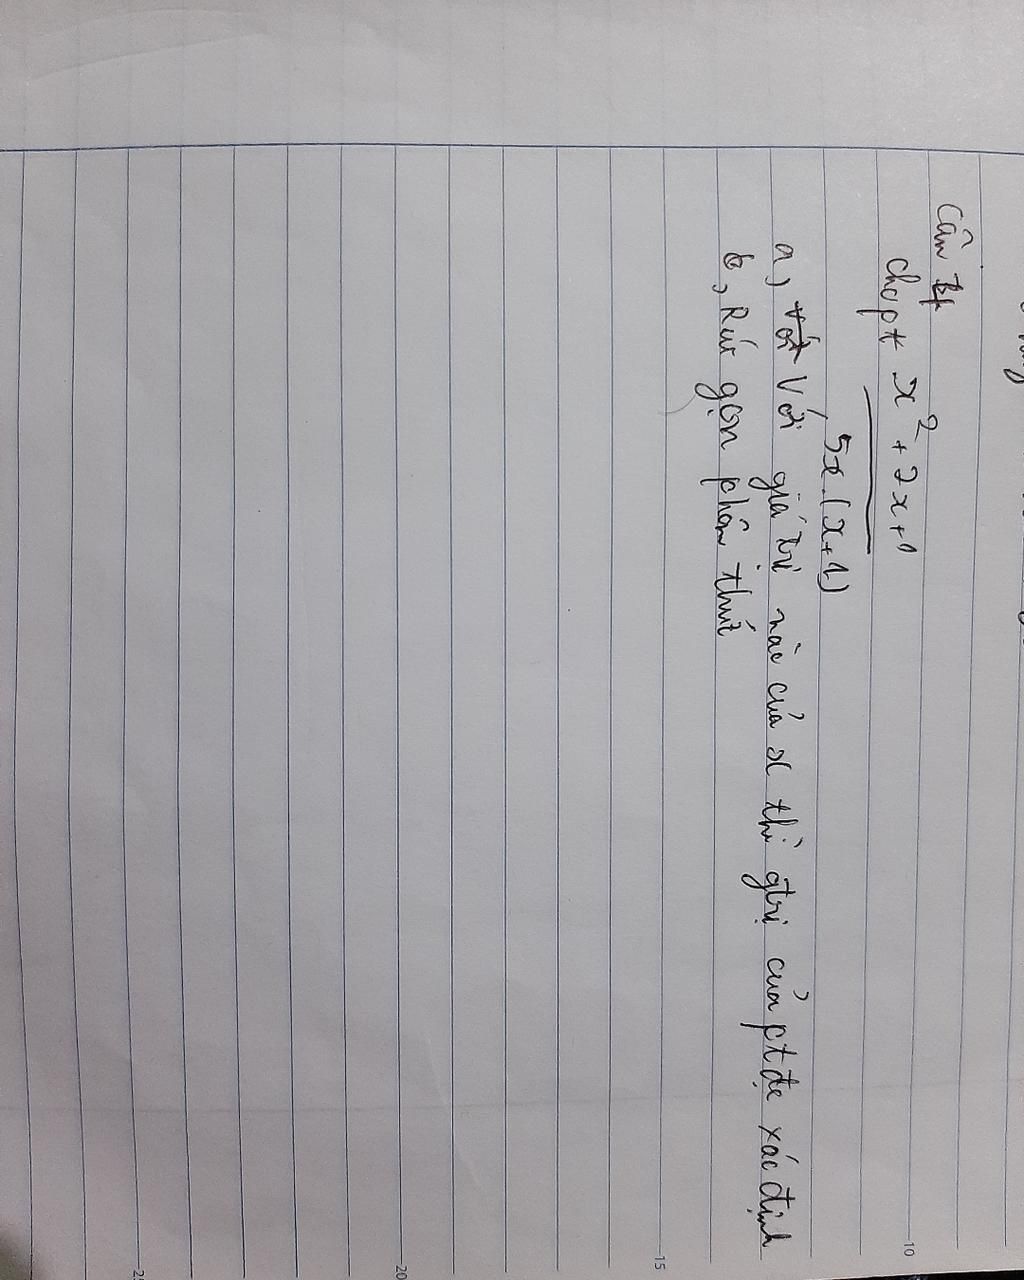 Cân
cho pt x² + 2x + 1
5x.(x+1)
a, Với giá trị nào của x thì gtrị của pt đc xác định
b, Rút gọn phân thức
10
15
20